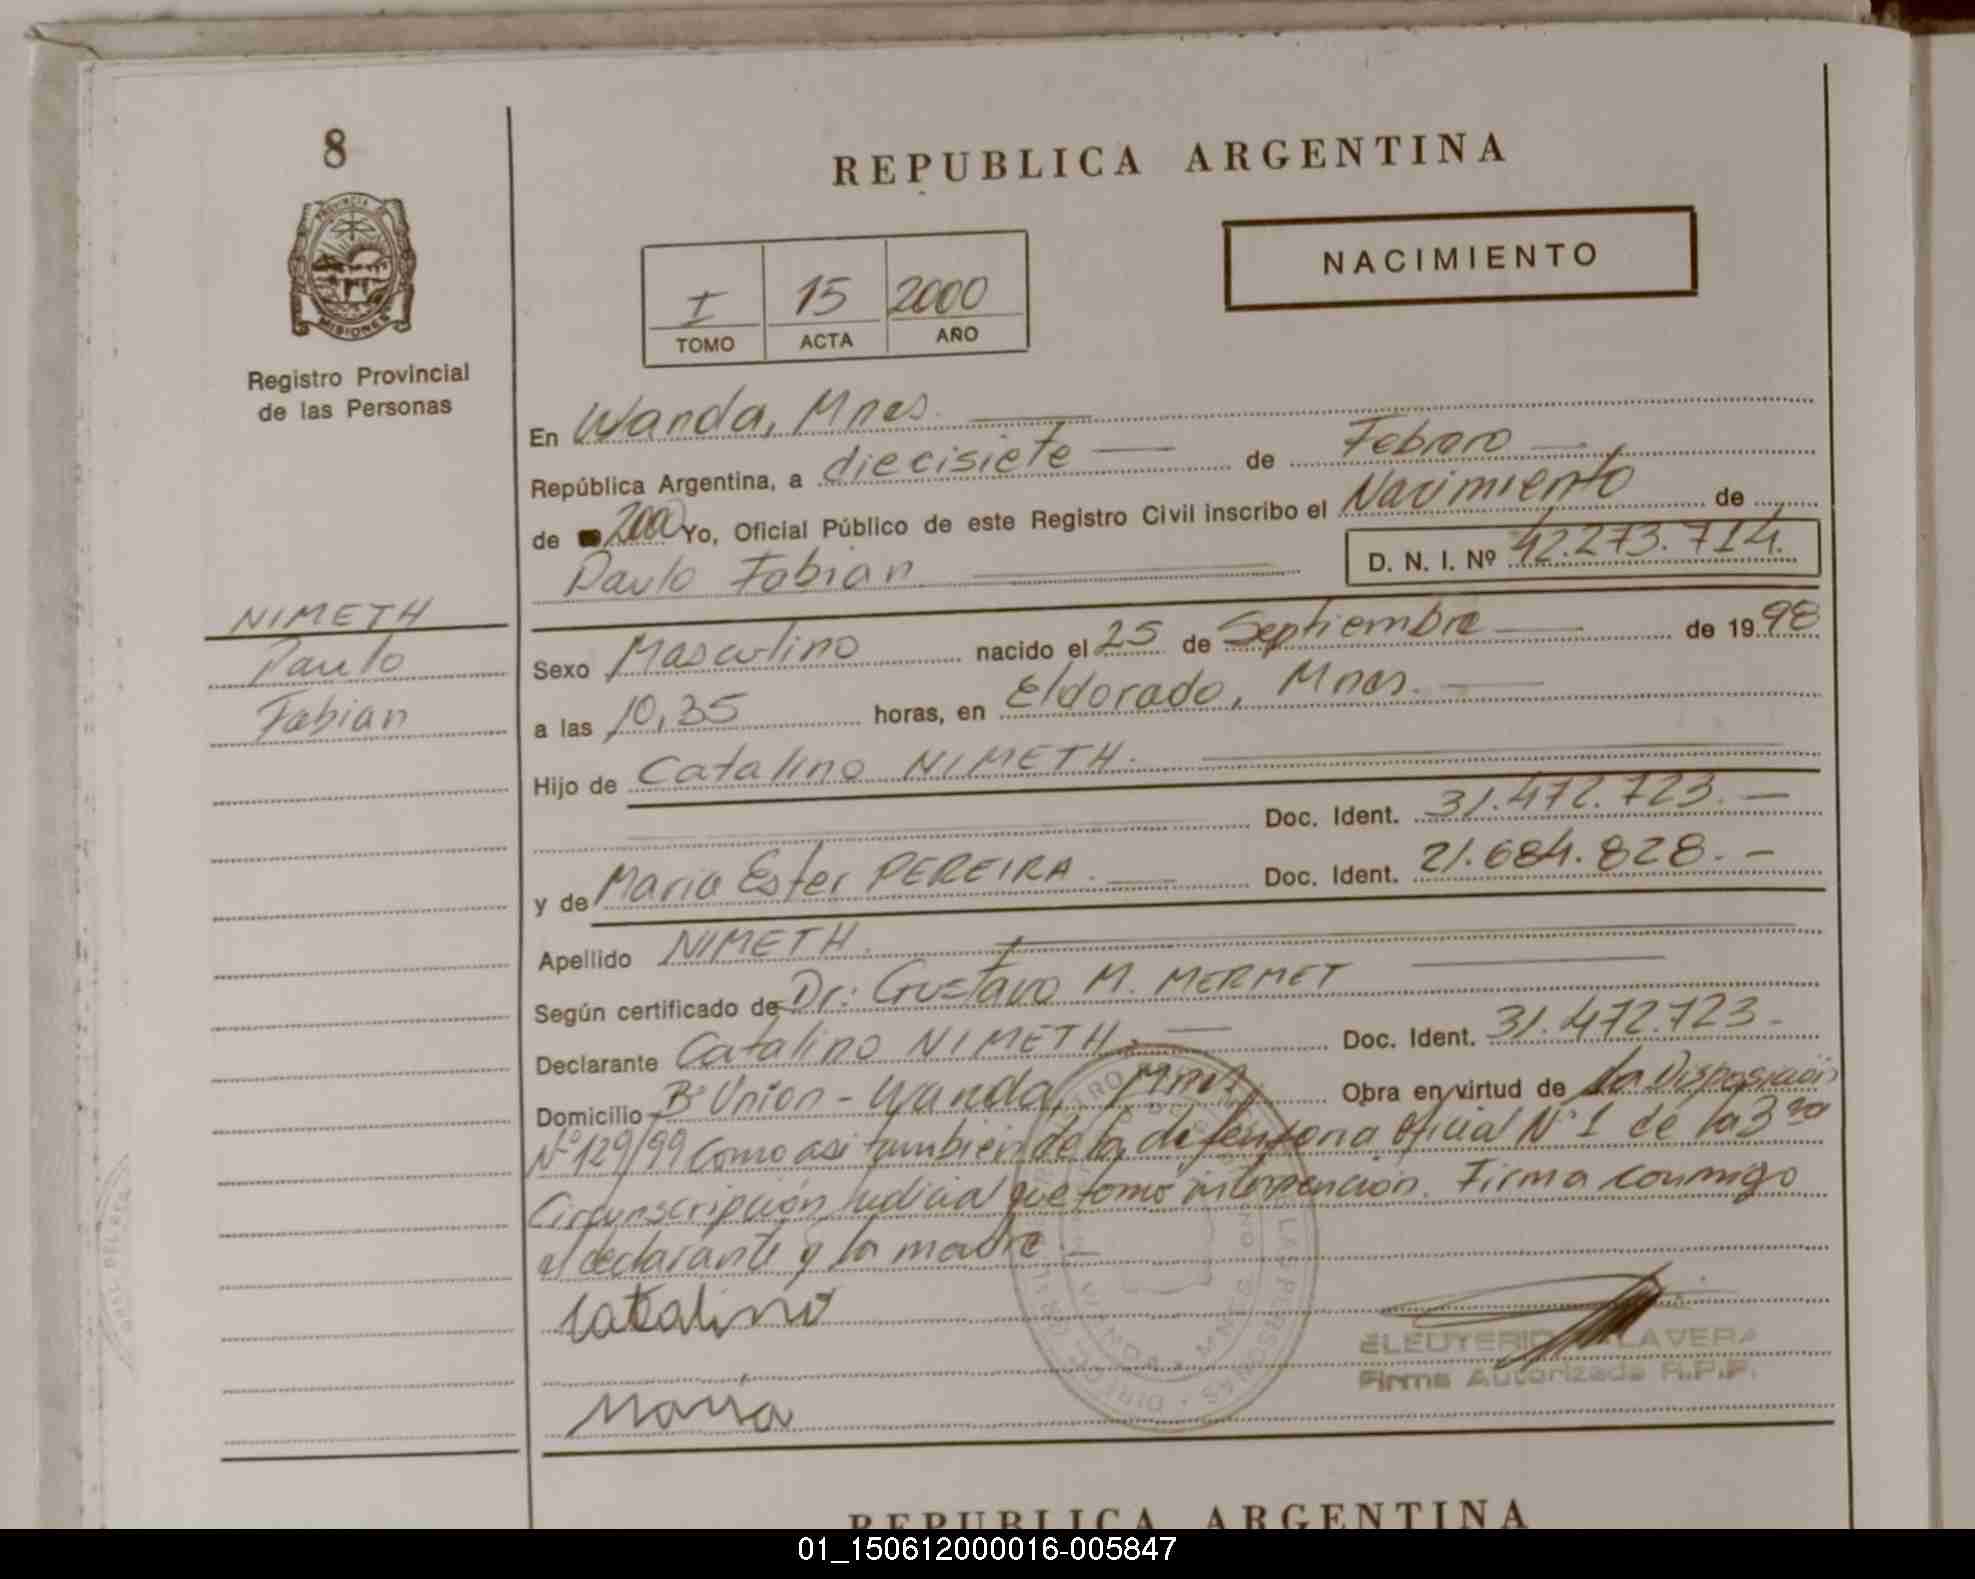 8
REPUBLICA ARGENTINA
NACIMIENTO
PROVINCIA
MISIONES
I 15 2000
TOMO ACTA AÑO
Registro Provincial
de las Personas
En Wanda, Mnes.
República Argentina, a diecisiete de Febrero
de 2000 Yo, Oficial Público de este Registro Civil inscribo el Nacimiento de
Paulo Fabian D. N. I. Nº 42.273.714.
NIMETH
Paulo
Fabian
Sexo Masculino nacido el 25 de Septiembre de 1998
a las 10,35 horas, en Eldorado, Mnes.
Hijo de Catalino NIMETH.
Doc. Ident. 31.472.723.-
y de Maria Ester PEREIRA. Doc. Ident. 21.684.828.-
Apellido NIMETH.
Según certificado de Dr: Gustavo M. MERMET
Declarante Catalino NIMETH. Doc. Ident. 31.472.723-
Domicilio Bº Unión - Wanda, Mnes. Obra en virtud de la Disposición
Nº 129/99 Como asi tambien de la defensoria oficial Nº 1 de la 3ra
Circunscripción Judicial que tomó intervención. Firma conmigo
el declarante y la madre.-
Catalino
ELEUTERIO
Firma Autorizada R.P.P.
Maria
REPUBLICA ARGENTINA
01_150612000016-005847